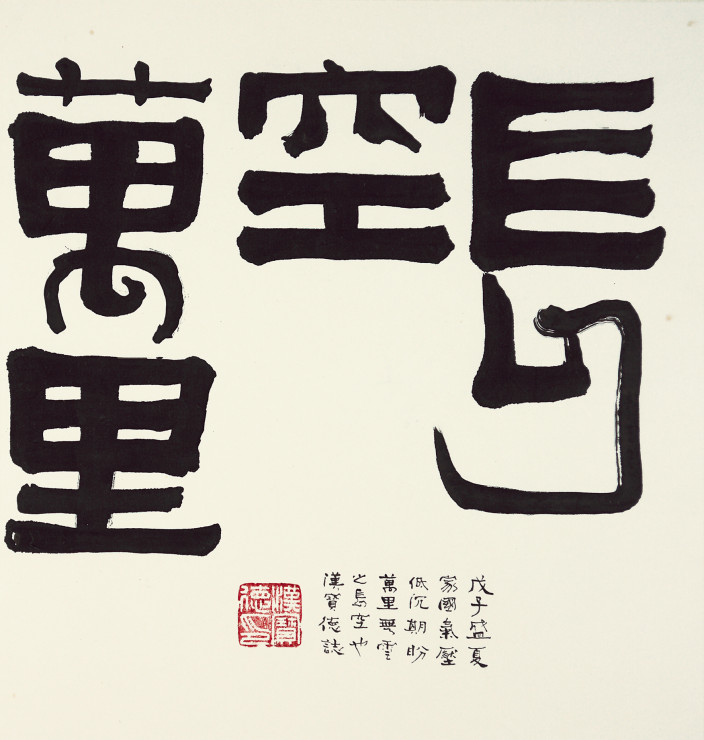 長
空
萬里
戊子盛夏
家國氣壓
低沉期盼
萬里無雲
之長空也
漢寶德誌
漢寶
德印